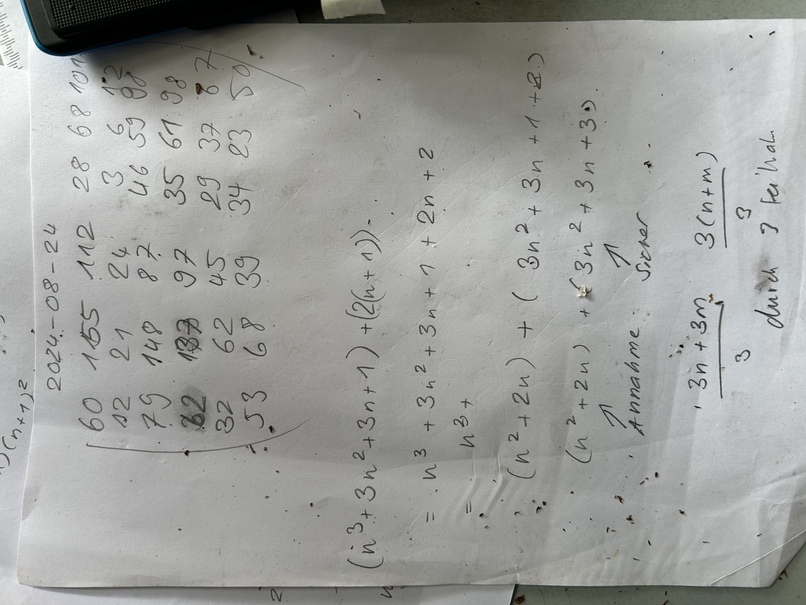 (n+1)²
2024-08-24
60 155 112 28 68 101
12 21 24 3 6 12
79 148 87 46 59 98
62 137 97 35 61 98
32 62 45 29 37 67
53 68 39 34 23 50
(n³+3n²+3n+1)+(2(n+1))
= n³+3n²+3n+1+2n+2
= n³+
(n²+2n) + (3n²+3n+1+2)
(n²+2n) + (3n²+3n+3)
Annahme Sicher
3n+3m / 3 3(n+m) / 3
durch 3 teilbar